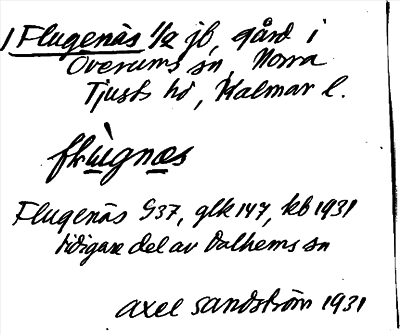 1 Flugenäs 1/2 jb, gård i
Överums sn, Norra
Tjusts hd, Kalmar l.
flugnæs
Flugenäs G37, glk 147, kb 1931
tidigare del av Dalhems sn
Axel Sandström 1931